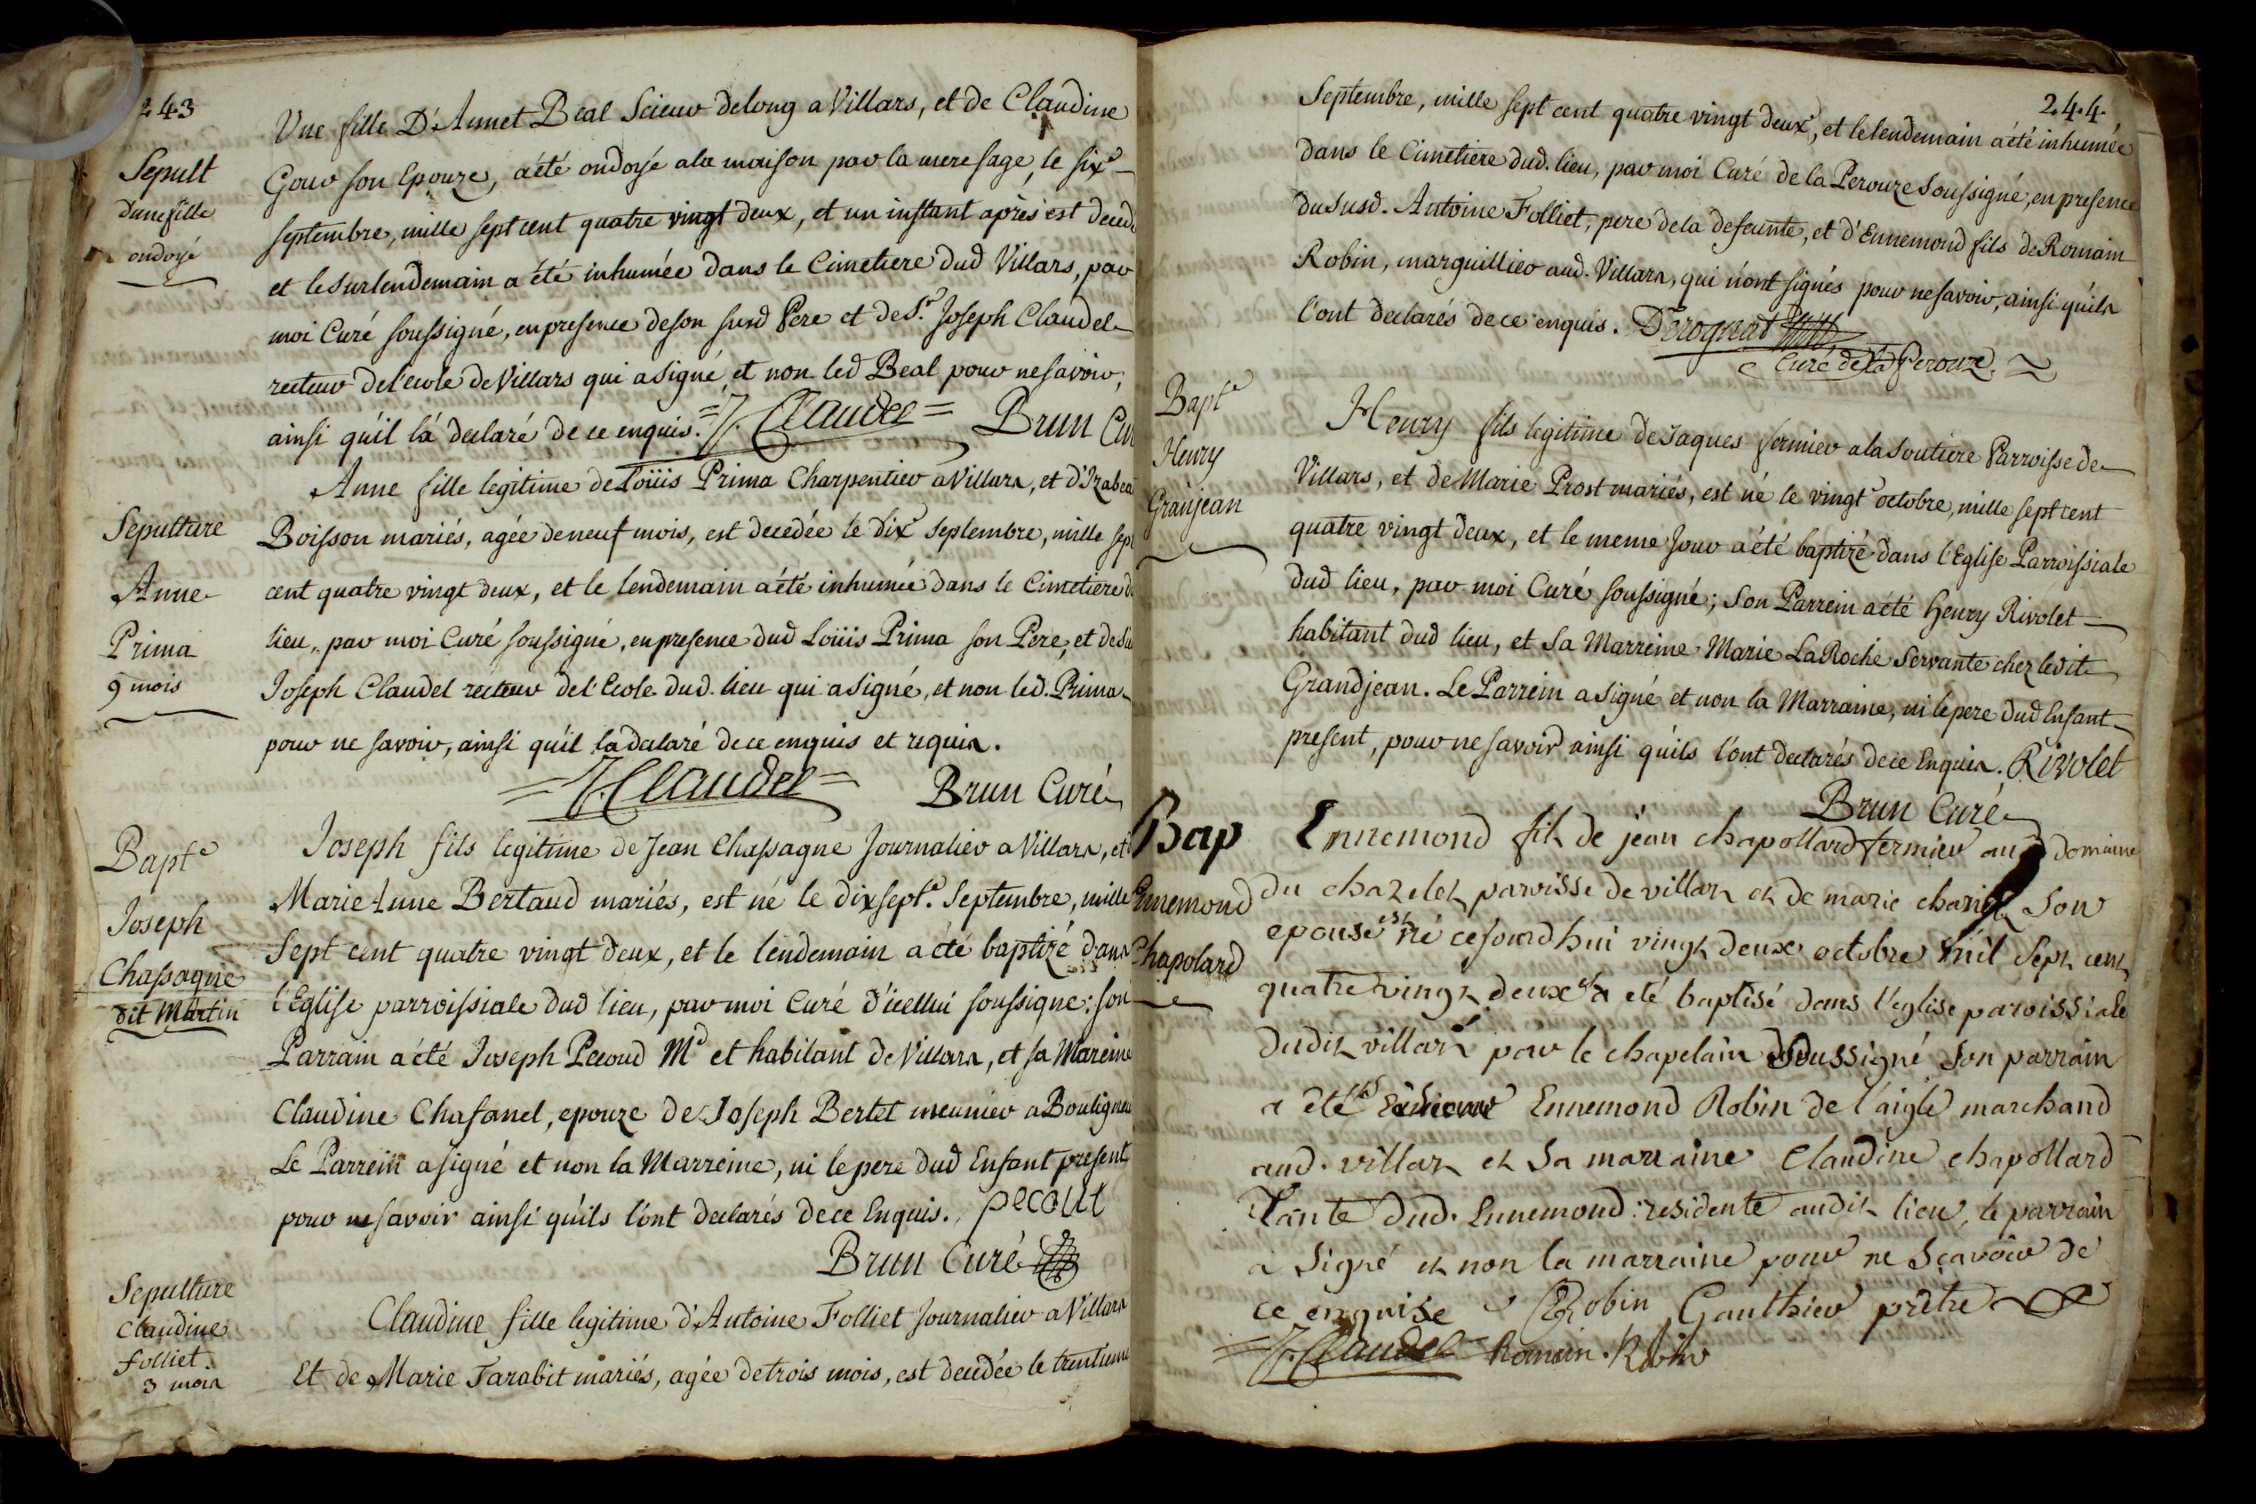 243
Sepult
d'une fille
ondoyé
Une fille D'Annet Beal Scieur de long a Villars, et de Claudine
Gour son Epouze, a été ondoyé a la maison par la mere sage, le six.e
septembre, mille sept cent quatre vingt deux, et un instant après est deced
et le surlendemain a été inhumée dans le Cimetiere dud Villars, par
moi Curé soussigné, en presence de son susd Pere et de S.r Joseph Claudel
recteur de l'ecole de Villars qui a signé, et non led Beal pour ne savoir,
ainsi qu'il l'a declaré de ce enquis. =J. Claudel= Brun Cur
Sepulture
Anne
Prima
9 mois
Anne fille legitime de Loüis Prima Charpentier a Villars, et d'Izabea
Boisson mariés, agée de neuf mois, est decedée le dix.e septembre, mille sept
cent quatre vingt deux, et le lendemain a été inhumée dans le Cimetiere d
lieu, par moi Curé soussigné, en presence dud Loüis Prima son Pere, et de S
Joseph Claudel recteur de l'Ecole dud. lieu qui a signé, et non led. Prima
pour ne savoir, ainsi qu'il l'a declaré de ce enquis et requis.
=J. Claudel= Brun Curé
Bapt.e
Joseph
Chassagne
dit Martin
Joseph fils legitime de Jean Chassagne Journalier a Villars, et
Marie Anne Bertaud mariés, est né le dix sept.e Septembre, mille
Sept cent quatre vingt deux, et le lendemain a été baptizé dans
l'Eglise parroissiale dud lieu, par moi Curé d'icellui soussigné: son
Parrain a été Joseph Pecoud M.d et habitant de Villars, et sa Mareine
Claudine Chasanel, epouze de Joseph Bertet meunier a Bouligneu
Le Parrein a signé et non la Marreine, ni le pere dud Enfant present,
pour ne savoir ainsi qu'ils l'ont declarés de ce Enquis. pecout
Brun Curé
Sepulture
Claudine
folliet.
3 mois
Claudine fille legitime d'Antoine Folliet Journalier a Villars
Et de Marie Tarabit mariés, agée de trois mois, est decedée le trentieme
244.
Septembre, mille sept cent quatre vingt deux, et le lendemain a été inhumée
dans le Cimetiere dud. lieu, par moi Curé de la Perouze soussigné, en presence
du susd. Antoine Folliet, pere de la defunte, et d'Ennemond fils de Romain
Robin, marguillier aud. Villars, qui n'ont signés pour ne savoir, ainsi qu'ils
l'ont declarés de ce enquis. Derognat
Curé de la Perouze.
Bapt.e
Henry
Granjean
Henry fils legitime de Jaques fermier a la Soutiere Parroisse de
Villars, et de Marie Prost mariés, est né le vingt.e octobre, mille sept cent
quatre vingt deux, et le meme Jour a été baptizé dans l'Eglise Parroissiale
dud lieu, par moi Curé soussigné; Son Parrein a été Henry Rivolet
habitant dud lieu, et Sa Marreine Marie LaRoche Servante chez ledit
Grandjean. Le Parrein a signé et non la Marraine, ni le pere dud Enfant
present, pour ne savoir ainsi qu'ils l'ont declarés de ce Enquis. Rivolet
Brun Curé
Bap
Ennemond
Chapolard
Ennemond fils de jéan chapollard fermier au domaine
du chazelet paroisse de villars et de marie son
epouse est né cejourdhui vingt deux octobre mil sept cent
quatre vingt deux et a eté baptisé dans l'eglise paroissiale
dudit villars par le chapelain soussigné son parrain
a été Ennemond Robin de l'aigle marchand
aud. villars et sa marraine Claudine chapollard
Tante dud. Ennemond residente audit lieu, le parrain
a signé et non la marraine pour ne sçavoir de
ce enquise Robin Gauthier prêtre
=J. Claudel= Romain. Robin